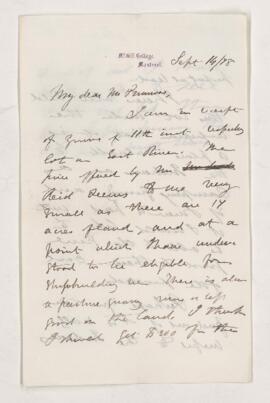 McGill College,
Montreal.
Sept 14/78
My dear Mr Primrose,
I am in receipt
of yours of 11th inst respecting
lot on East River. The
price offered by Mr
Reid seems to me very
small as there are 14
acres of land and at a
point which I have under
stood to be eligible for
shipbuilding &c. There is also
a pasture
good on the land. I think
I should get $300 for the